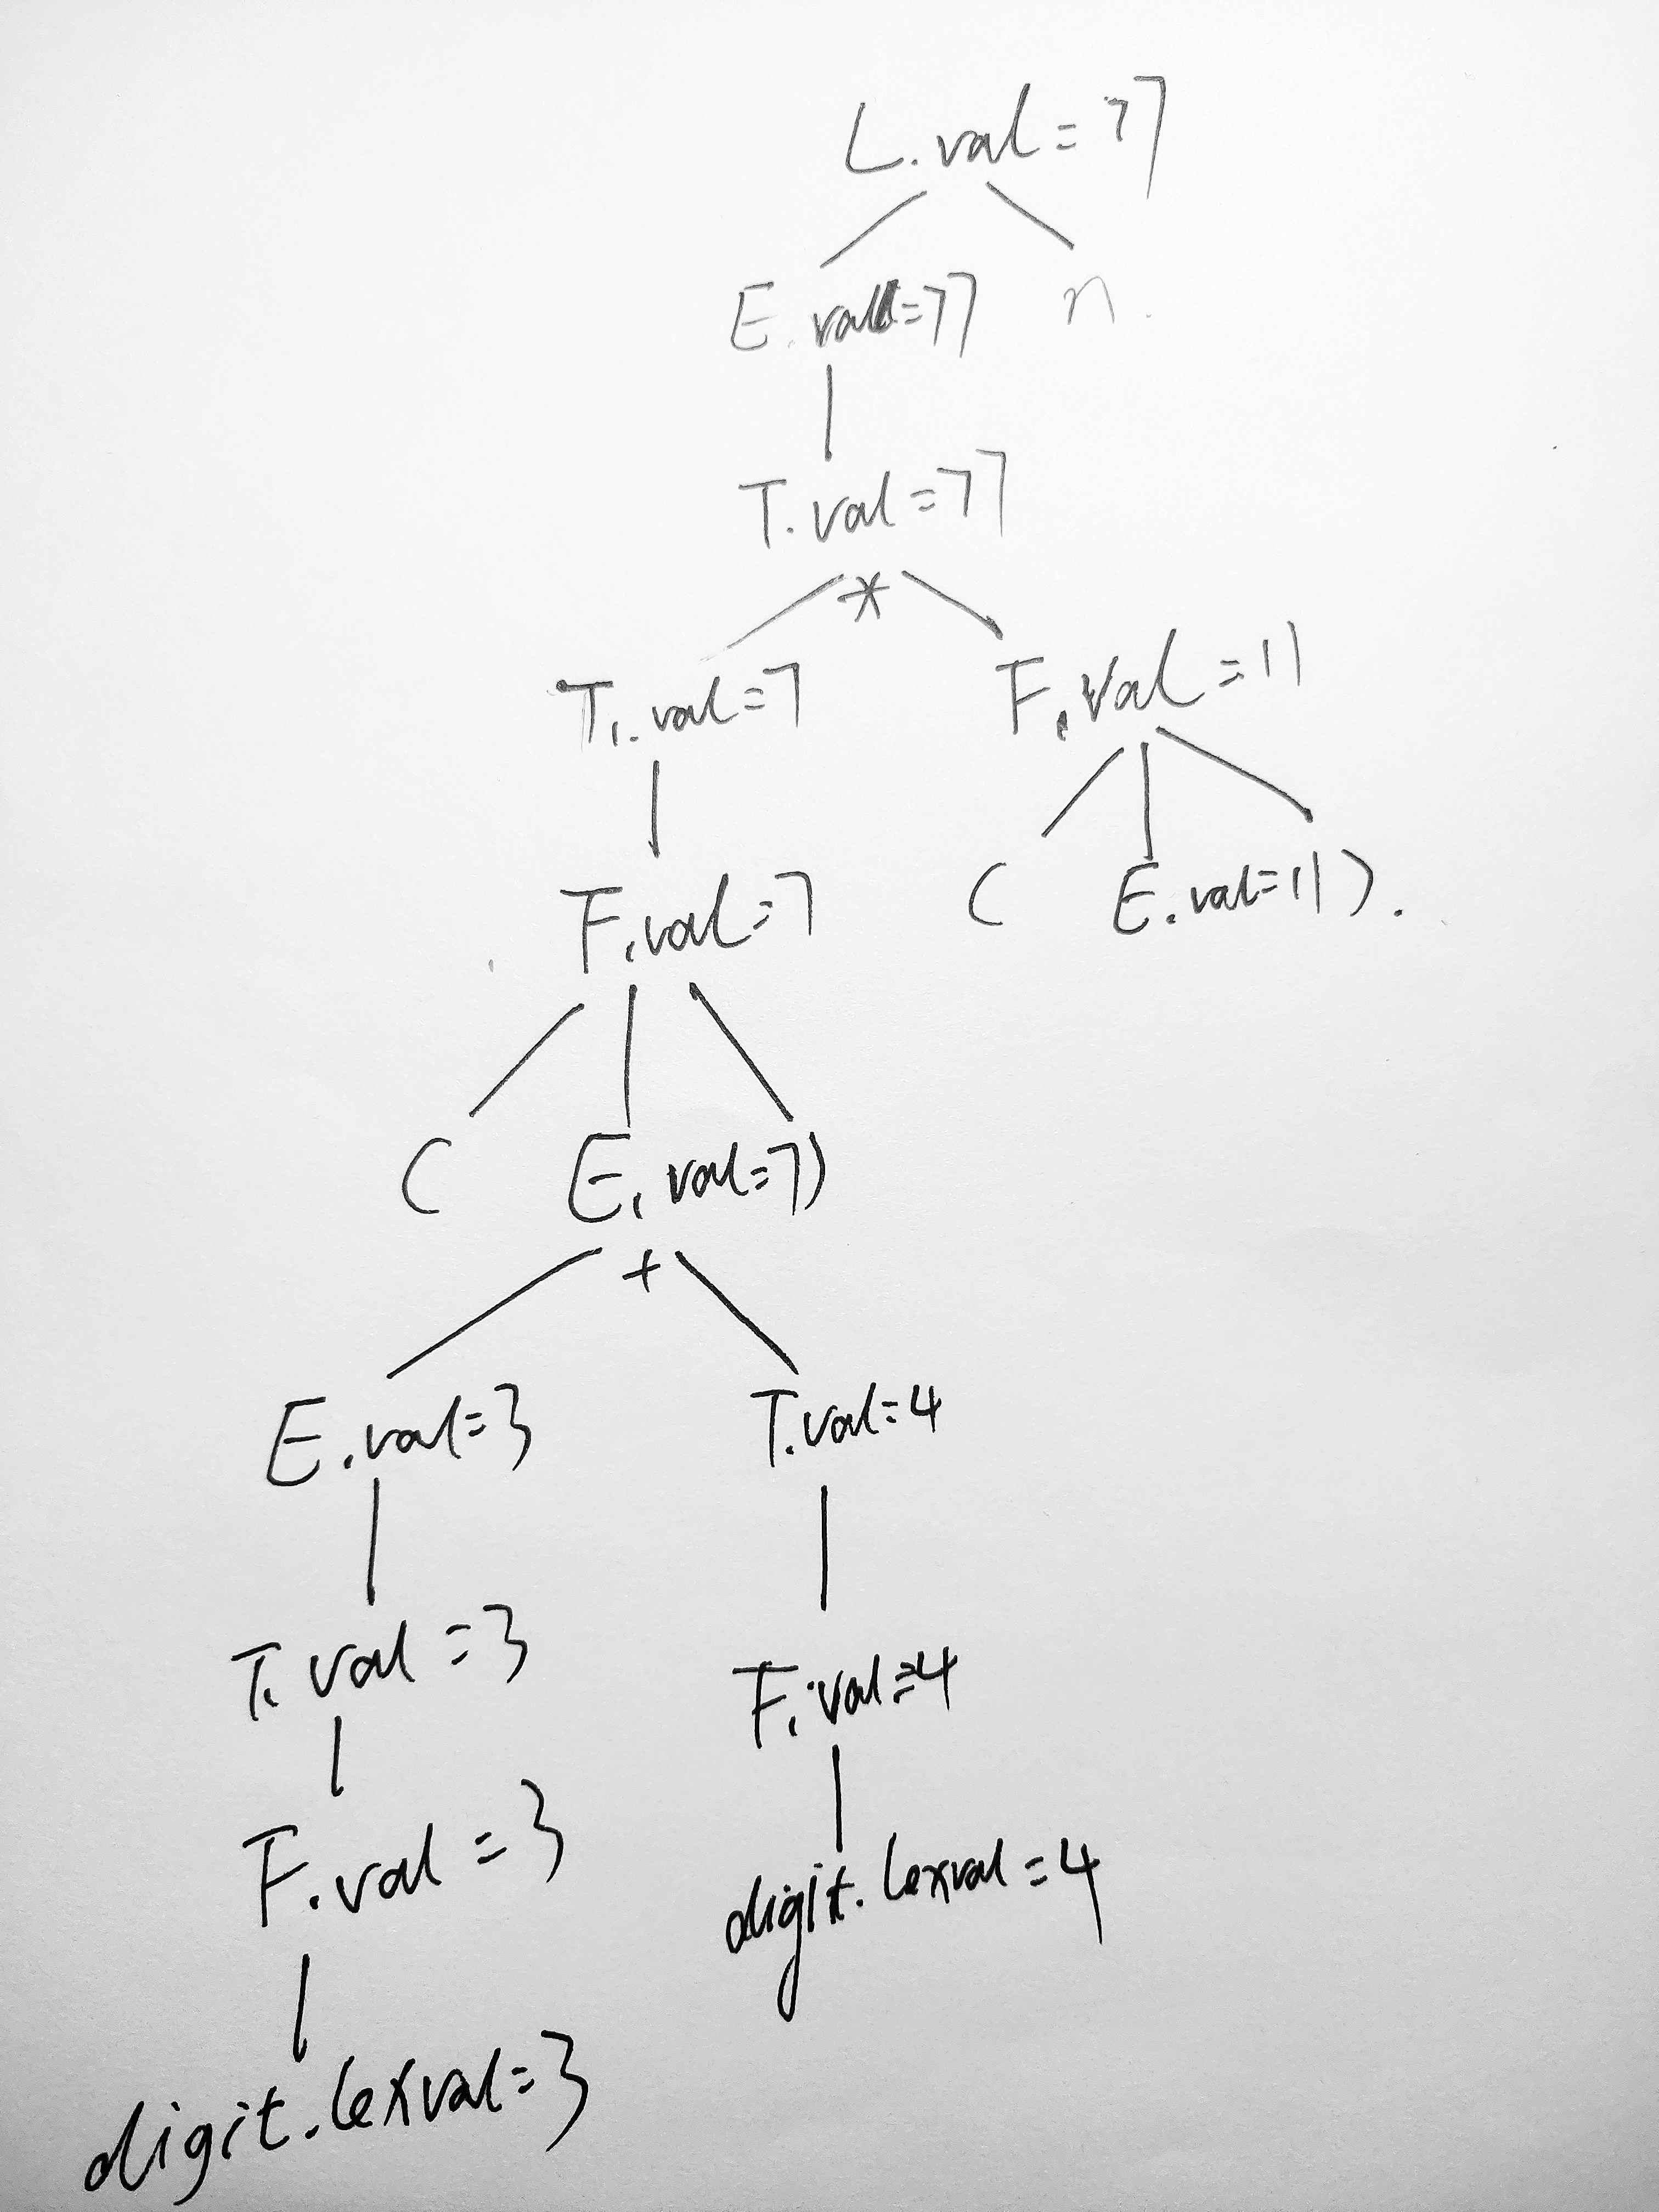 L.val=77
E.val=77 n.
T.val=77
*
T₁.val=7 F.val=11
F.val=7 ( E.val=11 ).
( E.val=7 )
+
E.val=3 T.val=4
T.val=3 F.val=4
F.val=3 digit.lexval=4
digit.lexval=3